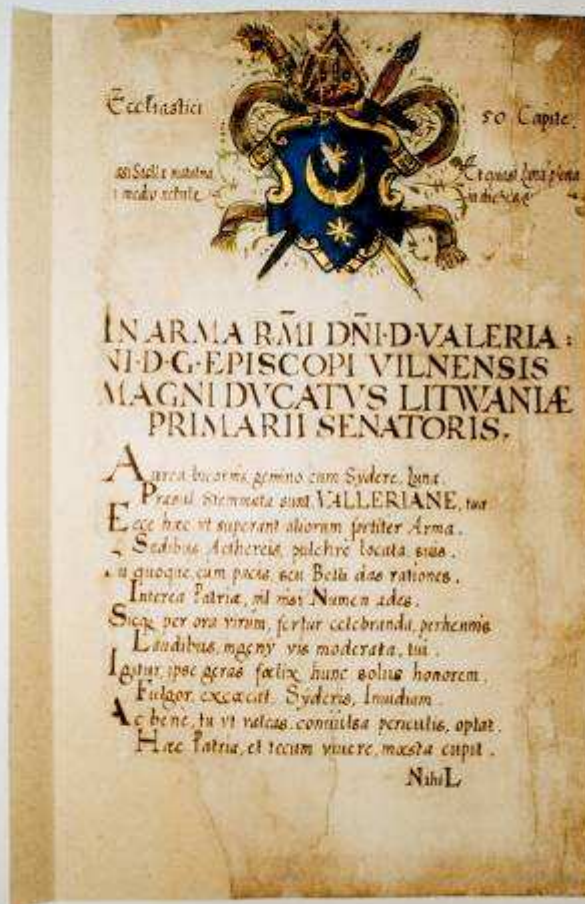 Eccliastici
50 Capite.
asi Stella matutina
i medio nebulæ
Et quasi Luna plena
in diebus
IN ARMA RM̃I DÑI·D·VALERIA:
NI·D·G·EPISCOPI VILNENSIS
MAGNI DVCATVS LITWANIÆ
PRIMARII SENATORIS.
Aurea bicornis, gemino cum Sydere, Luna.
Præsul Stemmata sunt VALLERIANE, tua
Ecce hæc vt superant aliorum fortiter Arma.
Sedibus Æthereis, pulchrè locata suis.
u quoque, cum pacis, seu Belli das rationes.
Interea Patriæ, nil nisi Numen ades.
Sicque per ora virum, fertur celebranda, perhennis
Laudibus, ingeny vis moderata, tui.
Igitur, ipse geras fœlix hunc solus honorem.
Fulgor, excæcat, Syderis, Inuidiam.
Ac bene, tu vt valeas, conuulsa periculis, optat.
Hæc Patria, et tecum viuere, mœsta cupit.
NihiL